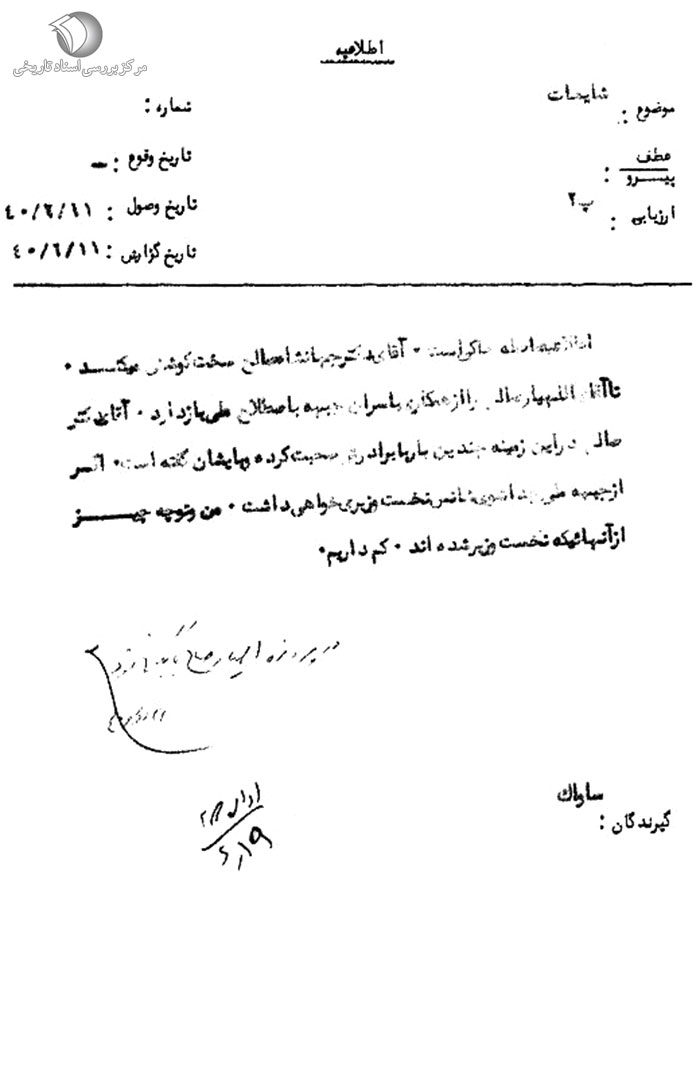 مرکز بررسی اسناد تاریخی
اطلاعیه
موضوع : شایعات
شماره :
عطف
پیرو :
تاریخ وقوع : —
ارزیابی : پ۲
تاریخ وصول : ۴۰/۶/۱۱
تاریخ گزارش : ۴۰/۶/۱۱
اطلاعیه حاکی است ۰ آقای دکتر جهانشاه صالح سخت کوشش میکنند ۰
تا آقای اللهیار صالح را از همکاری با سران جبهه باصطلاح ملی باز دارد ۰ آقای دکتر
صالح در این زمینه چندین بار با برادرش صحبت کرده و بایشان گفته است ۰ اگر
از جبهه ملی جدا شوی شانس نخست وزیری خواهی داشت ۰ من و تو چه چیز
از آنهائیکه نخست وزیر شده اند ۰ کم داریم ۰
در پرونده اللهیار صالح بایگانی شود
گیرندگان : ساواك
۶/۱۹